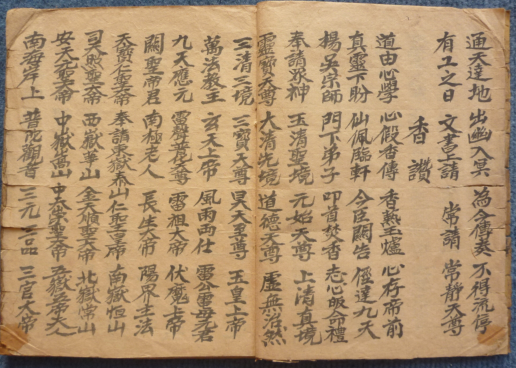 通天達地 出幽入冥 為今傳奏 不得流停
有工之日 文書上請 常請 常靜天尊
香讚
道由心學 心假香傳 香熱玉爐 心存帝前
真靈下盼 仙佩臨軒 今臣関告 徑達九天
揚吳宗師 門下弟子 叩首焚香 志心皈命禮
奉請眾神 玉清聖境 元始天尊 上清真境
靈寶天尊 太清 境 道德天尊 虛無浩然
三清三境 三寶天尊 昊天至尊 玉皇上帝
萬法教主 玄天上帝 風雨両仕 雷公電母君
九天應元 雷聲普化天尊 雷祖大帝 伏魔大帝
關聖帝君 南極老人 長生大帝 陽界主法
天 聖帝 奉請東嶽泰山 仁聖大帝 南嶽恒山
司天昭聖帝 西嶽華山 金天順聖大帝 北嶽恒山
安天元聖帝 中嶽嵩山 中天崇聖大帝 五嶽五帝大人
南海岸上 普陀觀音 三元三品 三官大帝